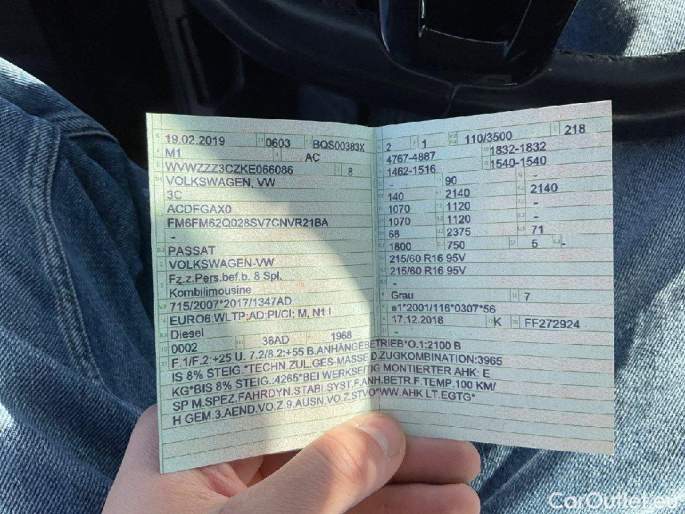 19.02.2019 0603 BQS00383X
M1 AC
WVWZZZ3CZKE066086 8
VOLKSWAGEN, VW
3C
ACDFGAX0
FM6FM62Q028SV7CNVR21BA
-
PASSAT
VOLKSWAGEN-VW
Fz.z.Pers.bef.b. 8 Spl.
Kombilimousine
715/2007*2017/1347AD
EURO6;WLTP;AD:PI/CI; M, N1 I
Diesel
0002 36AD 1968
2 1 110/3500 218
4767-4887 1832-1832
1462-1516 1540-1540
- 90 -
140 2140 2140
1070 1120 -
1070 1120 -
68 2375 71
1800 750 5 -
215/60 R16 95V
215/60 R16 95V
-
Grau 7
e1*2001/116*0307*56
17.12.2018 K FF272924
F.1/F.2:+25 U. 7.2/8.2:+55 B.ANHÄNGEBETRIEB*O.1:2100 B
IS 8% STEIG.*TECHN.ZUL.GES-MASSE D.ZUGKOMBINATION:3965
KG*BIS 8% STEIG.:4265*BEI WERKSEITIG MONTIERTER AHK: E
SP M.SPEZ.FAHRDYN.STABI.SYST.F.ANH.BETR.F.TEMP.100 KM/
H GEM.3.AEND.VO.Z.9.AUSN.VO.Z.STVO*WW.AHK LT.EGTG*
CarOutlet.eu